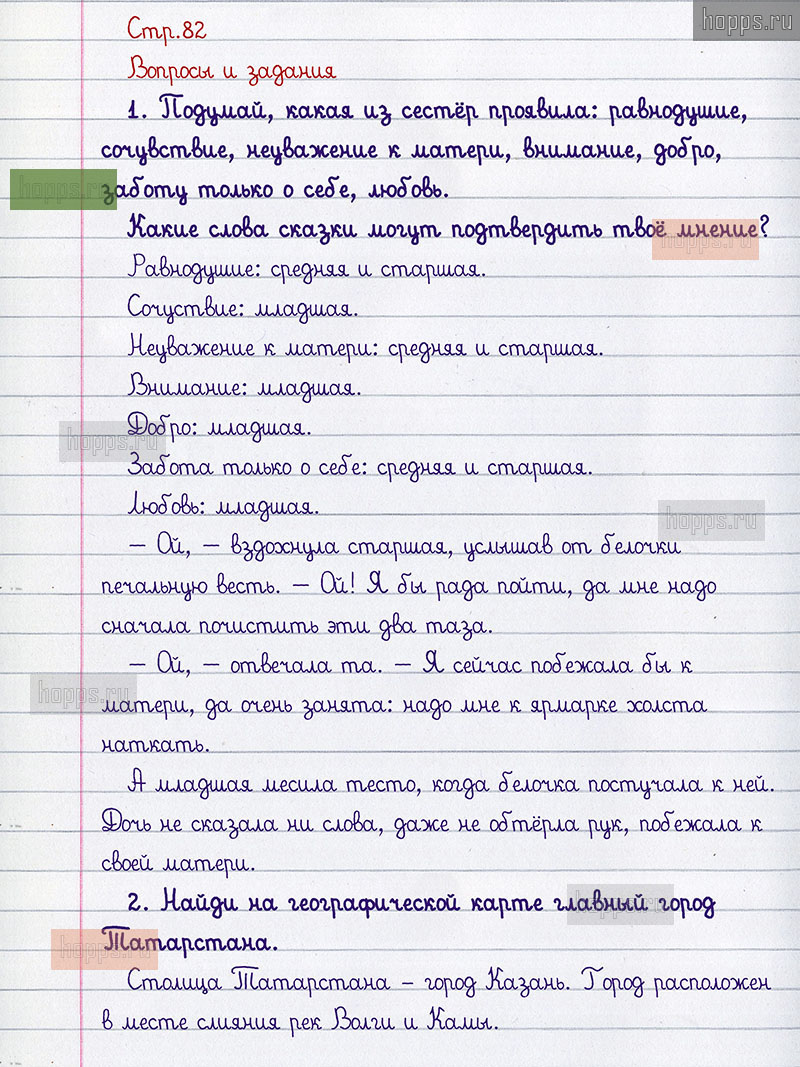 hopps.ru
Стр.82
Вопросы и задания
1. Подумай, какая из сестёр проявила: равнодушие,
сочувствие, неуважение к матери, внимание, добро,
hopps.ru
заботу только о себе, любовь.
Какие слова сказки могут подтвердить твоё мнение?
hopps.ru
Равнодушие: средняя и старшая.
Сочуствие: младшая.
Неуважение к матери: средняя и старшая.
Внимание: младшая.
Добро: младшая.
hopps.ru
Забота только о себе: средняя и старшая.
Любовь: младшая.
hopps.ru
– Ой, – вздохнула старшая, услышав от белочки
печальную весть. – Ой! Я бы рада пойти, да мне надо
сначала почистить эти два таза.
– Ой, – отвечала та. – Я сейчас побежала бы к
hopps.ru
матери, да очень занята: надо мне к ярмарке холста
наткать.
А младшая месила тесто, когда белочка постучала к ней.
Дочь не сказала ни слова, даже не обтёрла рук, побежала к
своей матери.
2. Найди на географической карте главный город
hopps.ru
Татарстана.
hopps.ru
Столица Татарстана – город Казань. Город расположен
в месте слияния рек Волги и Камы.